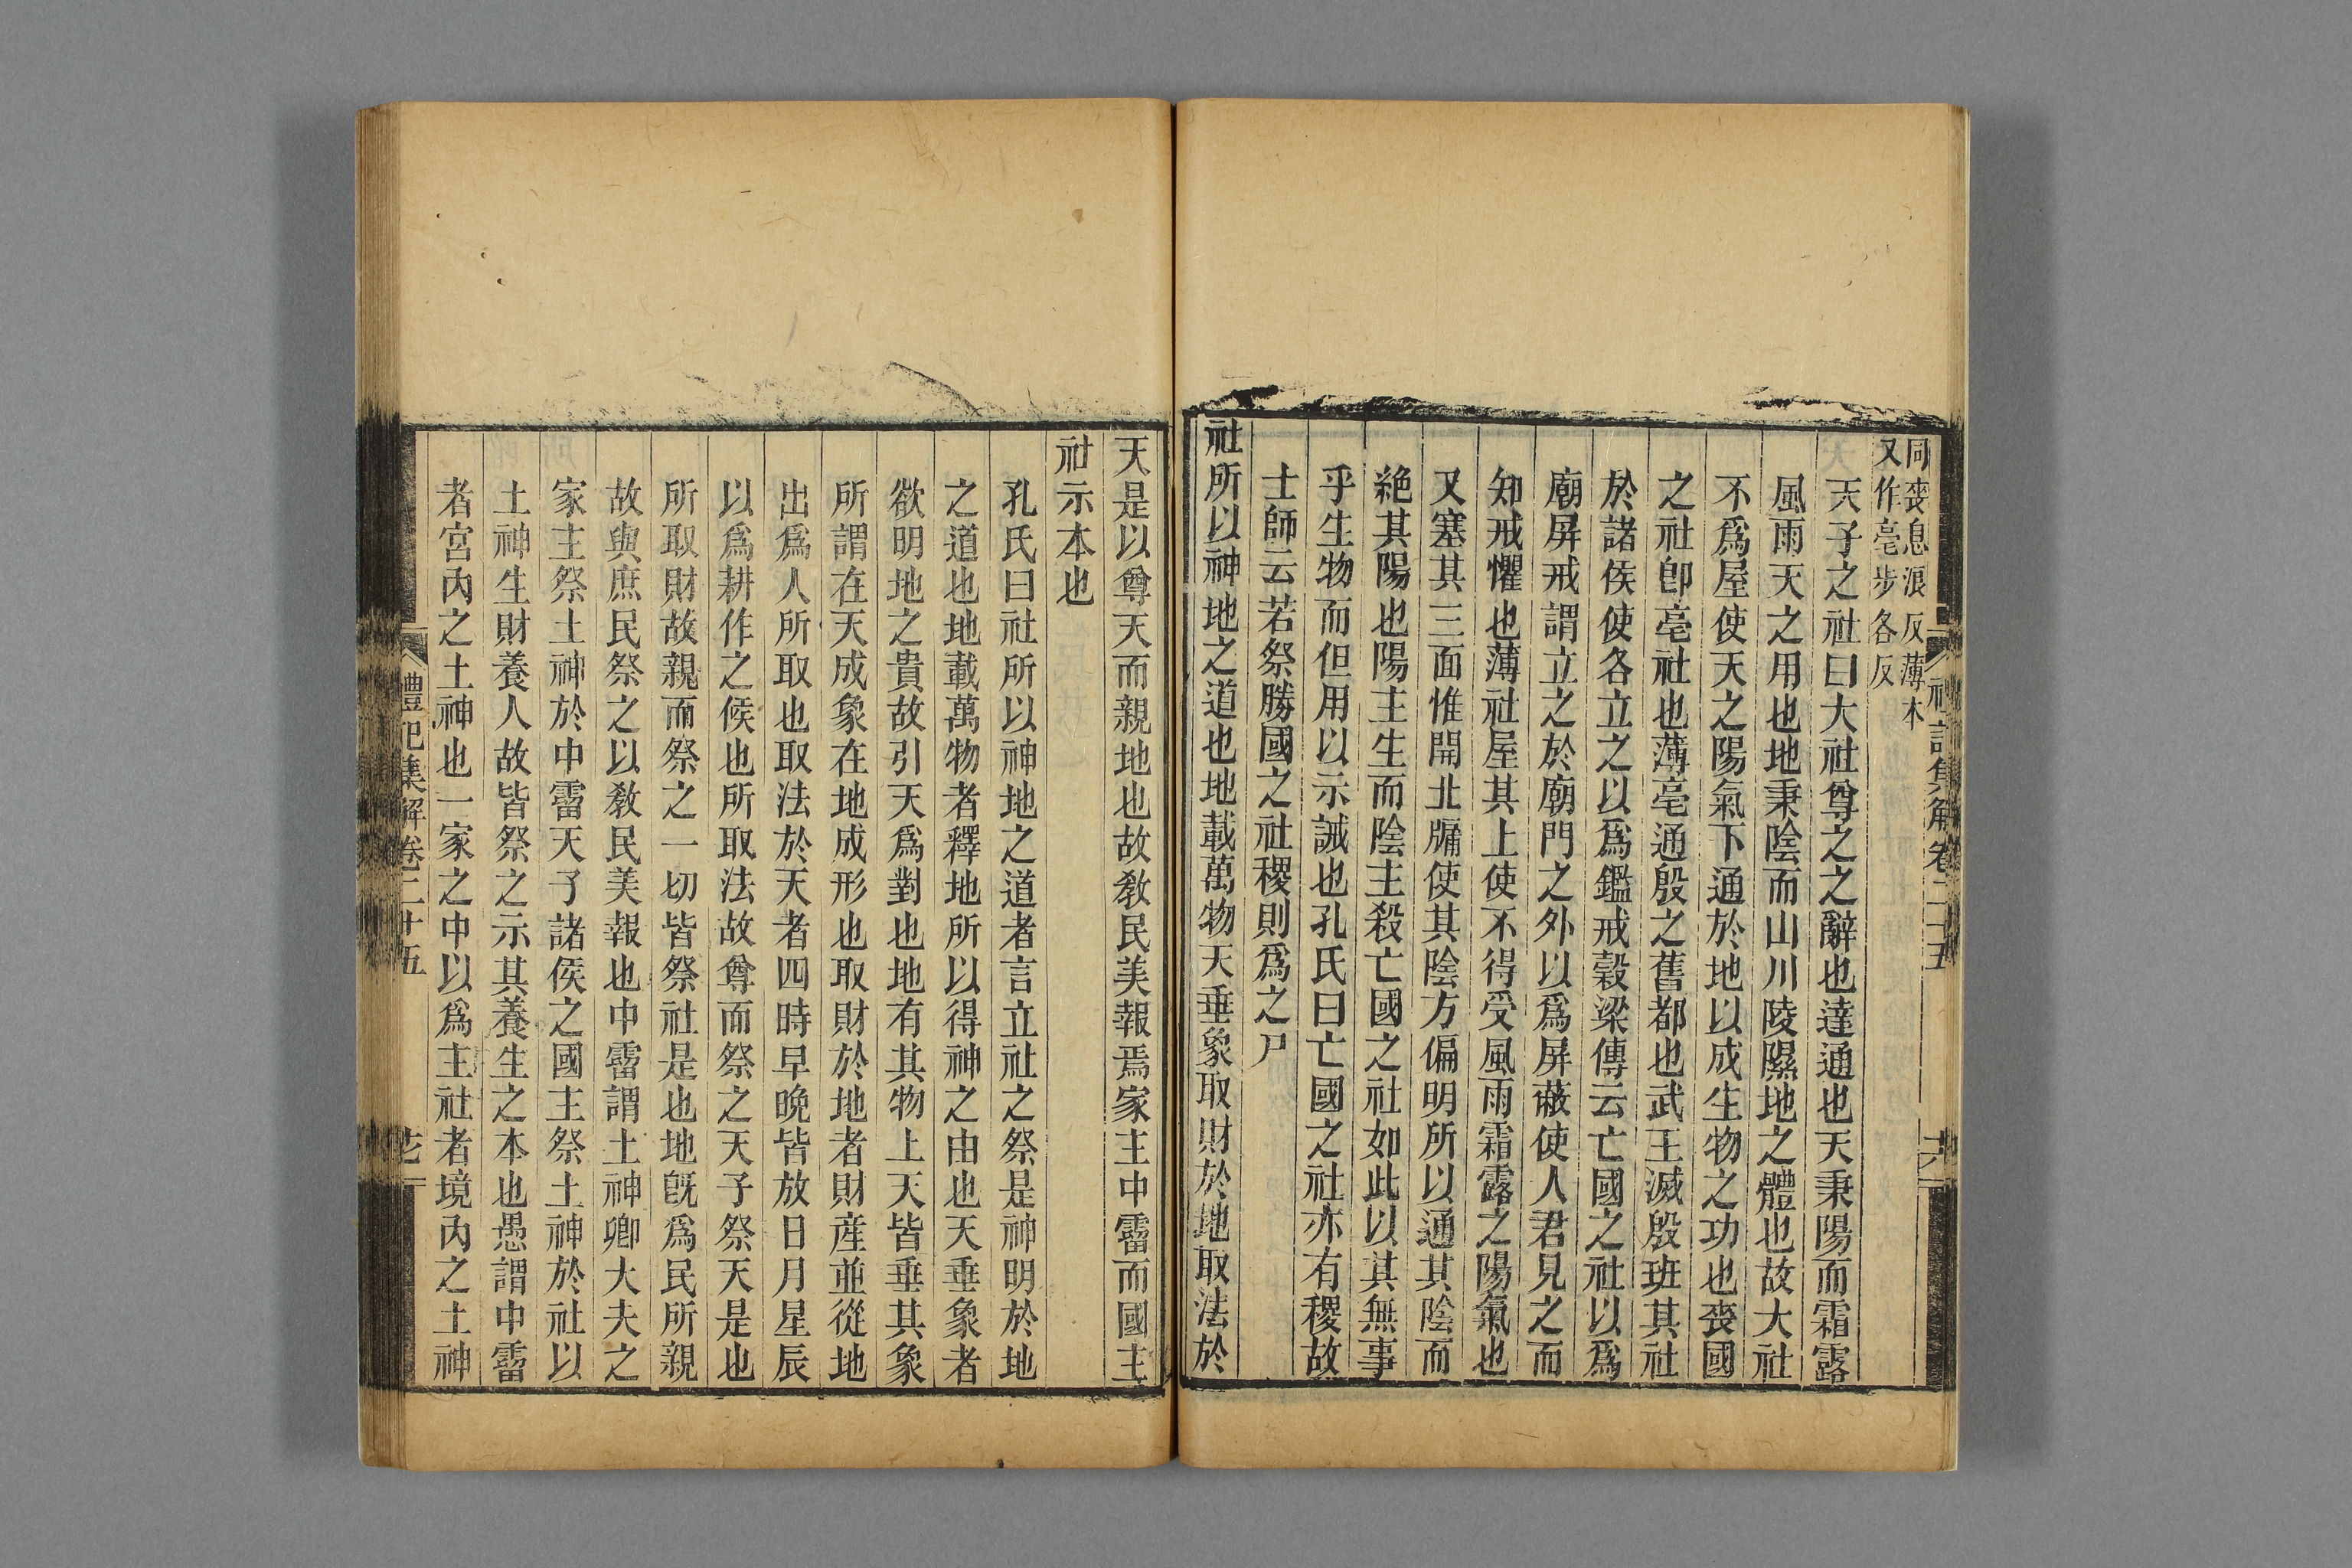 同喪息浪反薄本
又作亳步各反
天子之社曰大社尊之之辭也達通也天秉陽而霜露
風雨天之用也地秉陰而山川陵隰地之體也故大社
不爲屋使天之陽氣下通於地以成生物之功也喪國
之社卽亳社也薄亳通殷之舊都也武王滅殷班其社
於諸侯使各立之以爲鑑戒穀梁傳云亡國之社以爲
廟屏戒謂立之於廟門之外以爲屏蔽使人君見之而
知戒懼也薄社屋其上使不得受風雨霜露之陽氣也
又塞其三面惟開北牖使其陰方偏明所以通其陰而
絶其陽也陽主生而陰主殺亡國之社如此以其無事
乎生物而但用以示誡也孔氏曰亡國之社亦有稷故
士師云若祭勝國之社稷則爲之尸
社所以神地之道也地載萬物天垂象取財於地取法於
天是以尊天而親地也故敎民美報焉家主中霤而國主
社示本也
孔氏曰社所以神地之道者言立社之祭是神明於地
之道也地載萬物者釋地所以得神之由也天垂象者
欲明地之貴故引天爲對也地有其物上天皆垂其象
所謂在天成象在地成形也取財於地者財産並從地
出爲人所取也取法於天者四時早晚皆放日月星辰
以爲耕作之候也所取法故尊而祭之天子祭天是也
所取財故親而祭之一切皆祭社是也地旣爲民所親
故與庶民祭之以敎民美報也中霤謂土神卿大夫之
家主祭土神於中霤天子諸侯之國主祭土神於社以
土神生財養人故皆祭之示其養生之本也愚謂中霤
者宮內之土神也一家之中以爲主社者境內之土神
禮記集解卷二十五